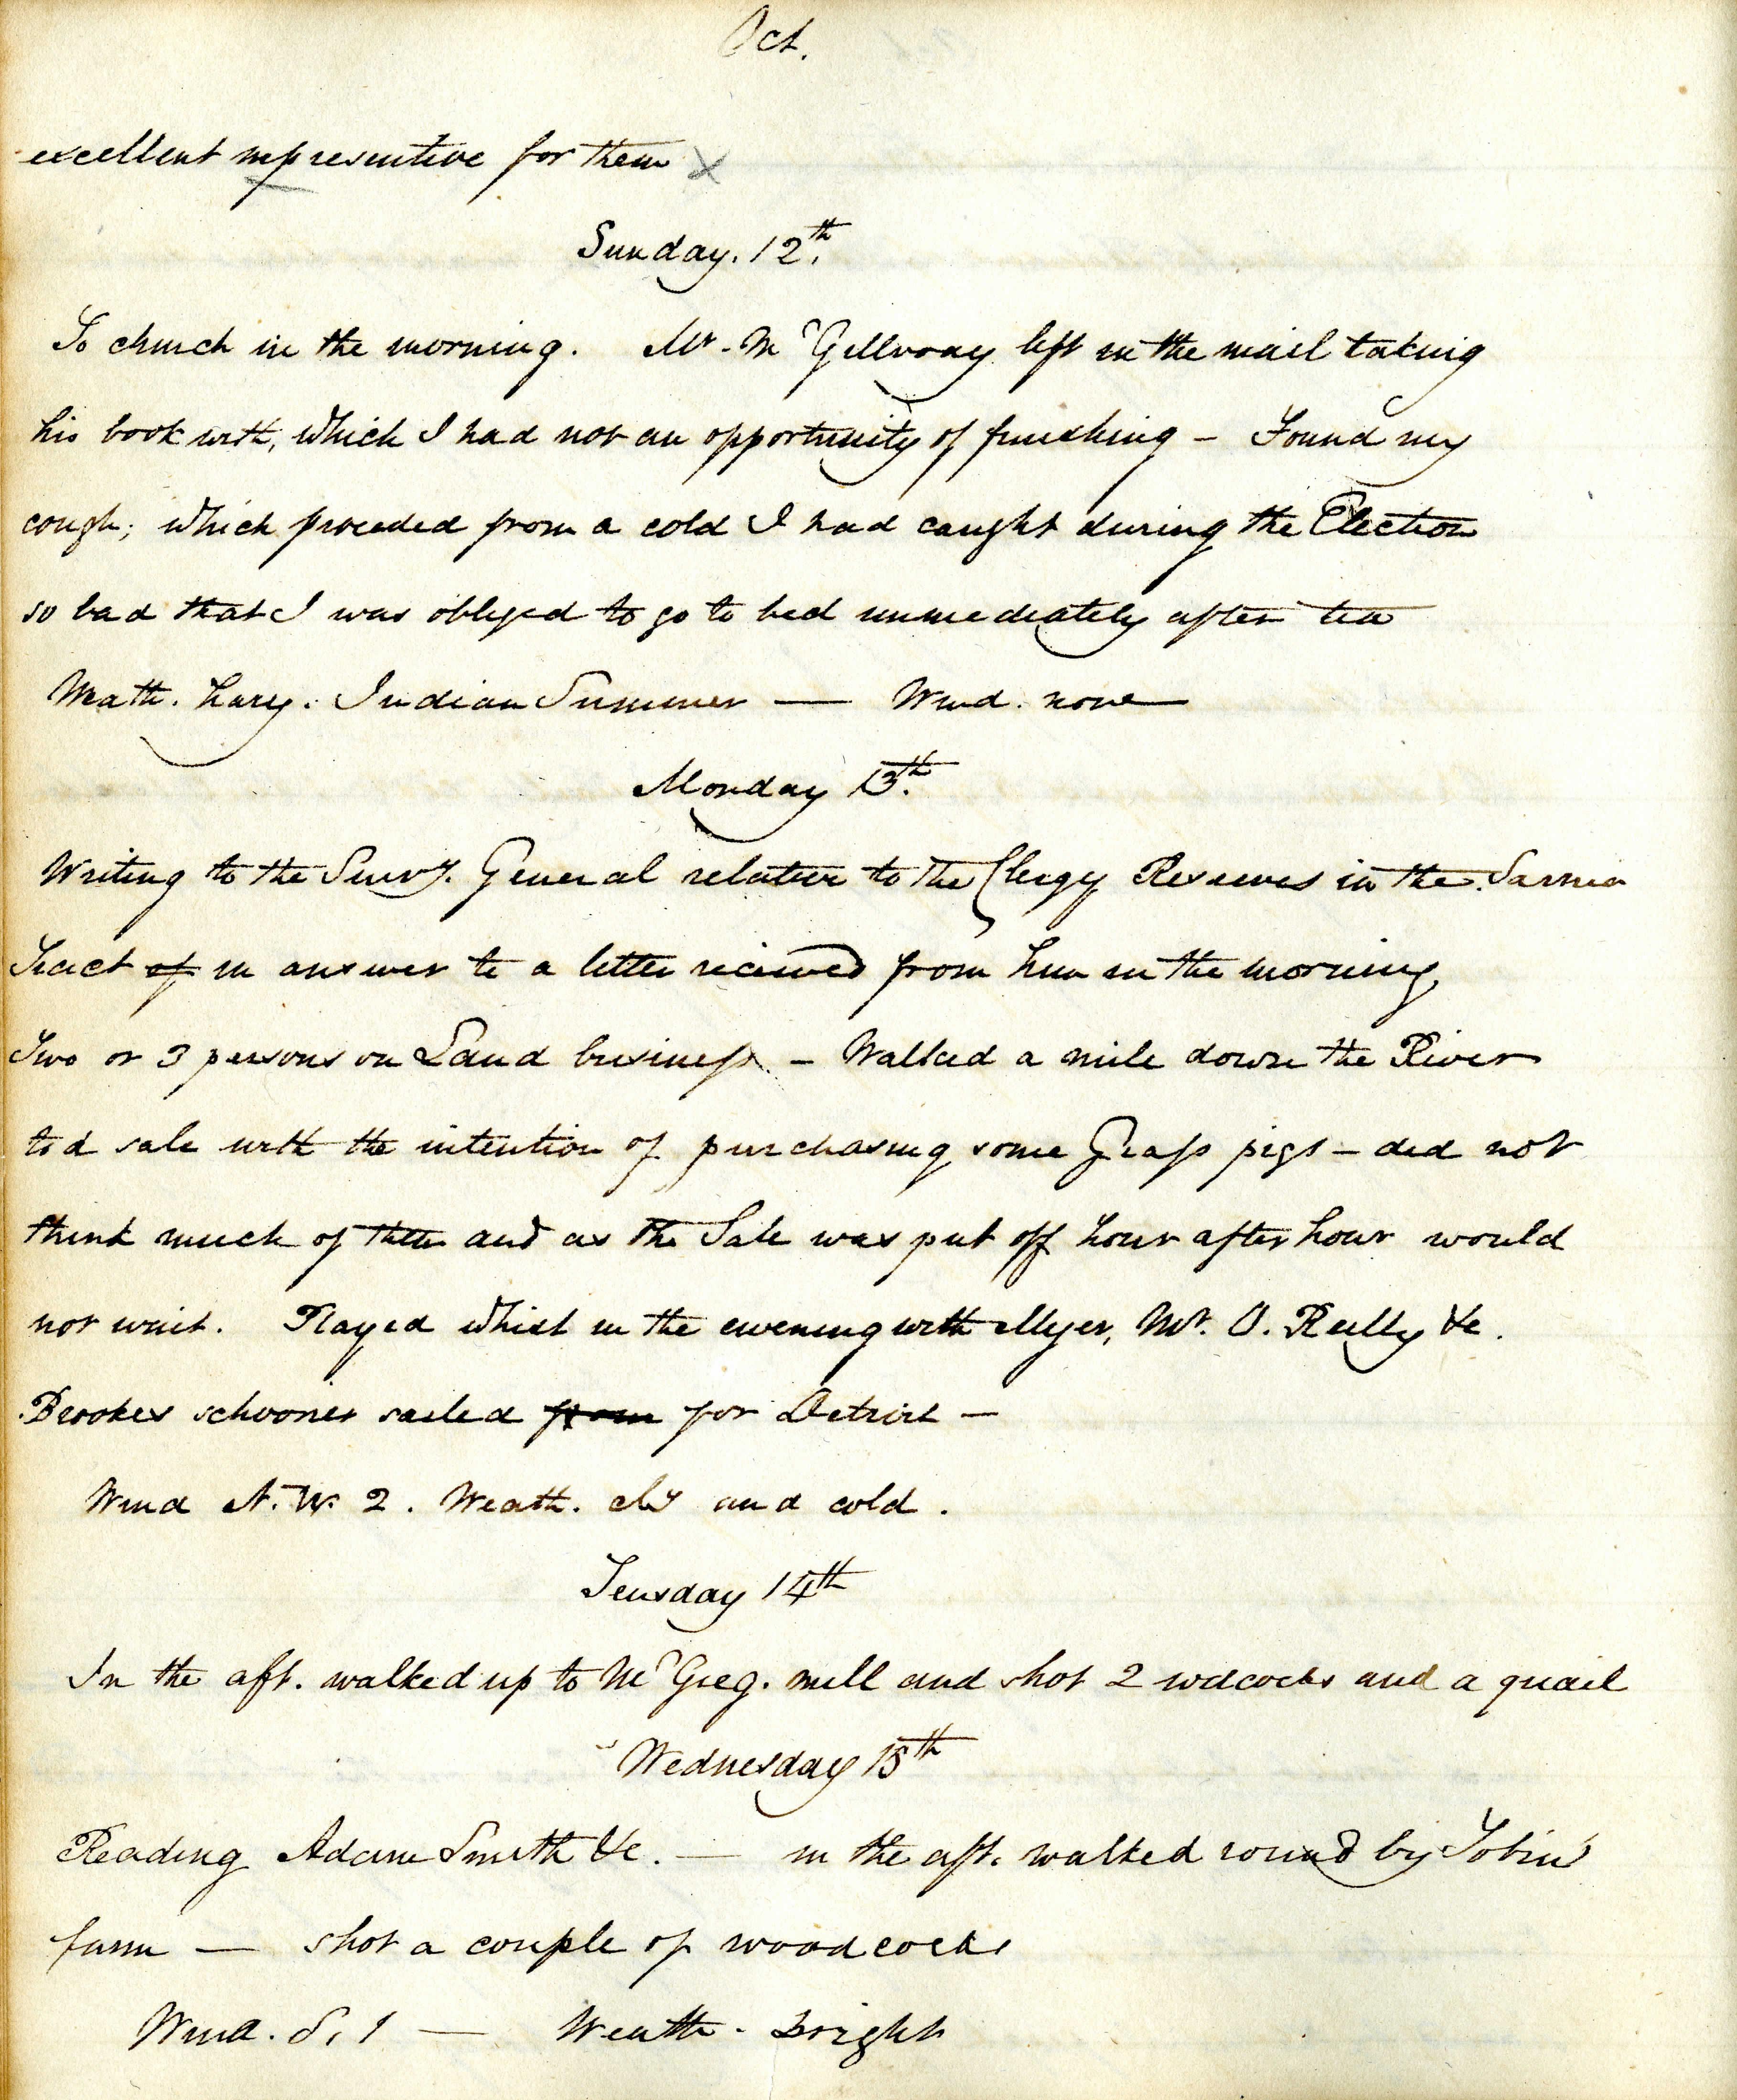 Oct.
excellent represensitive for them x
Sunday. 12th.
To church in the morning. Mr. McGillvray left in the mail taking
his book with, which I had not an opportunity of finishing - Found my
cough; which proceded from a cold I had caught during the Election
so bad that I was obliged to go to bed immediately after tea
Weath. hazy. Indian Summer — Wind. none
Monday 13th.
Writing to the Survy. General relative to the Clergy Reserves in the Sarnia
Tract of in answer to a letter received from him in the morning
Two or 3 persons on Land business. - Walked a mile down the River
to a sale with the intention of purchasing some Grass pigs - did not
think much of them and as the Sale was put off hour after hour would
not wait. Played whist in the evening with Myer, Mr. O. Reilly &c.
Brookes schooner sailed from for Detroit -
Wind N.W. 2. Weath. cly and cold.
Teusday 14th
In the aft. walked up to McGreg. mill and shot 2 wdcocks and a quail
Wednesday 15th
Reading Adam Smith &c. — in the aft. walked round by Tobin's
farm — shot a couple of woodcocks
Wind. S. 1 — Weath. bright